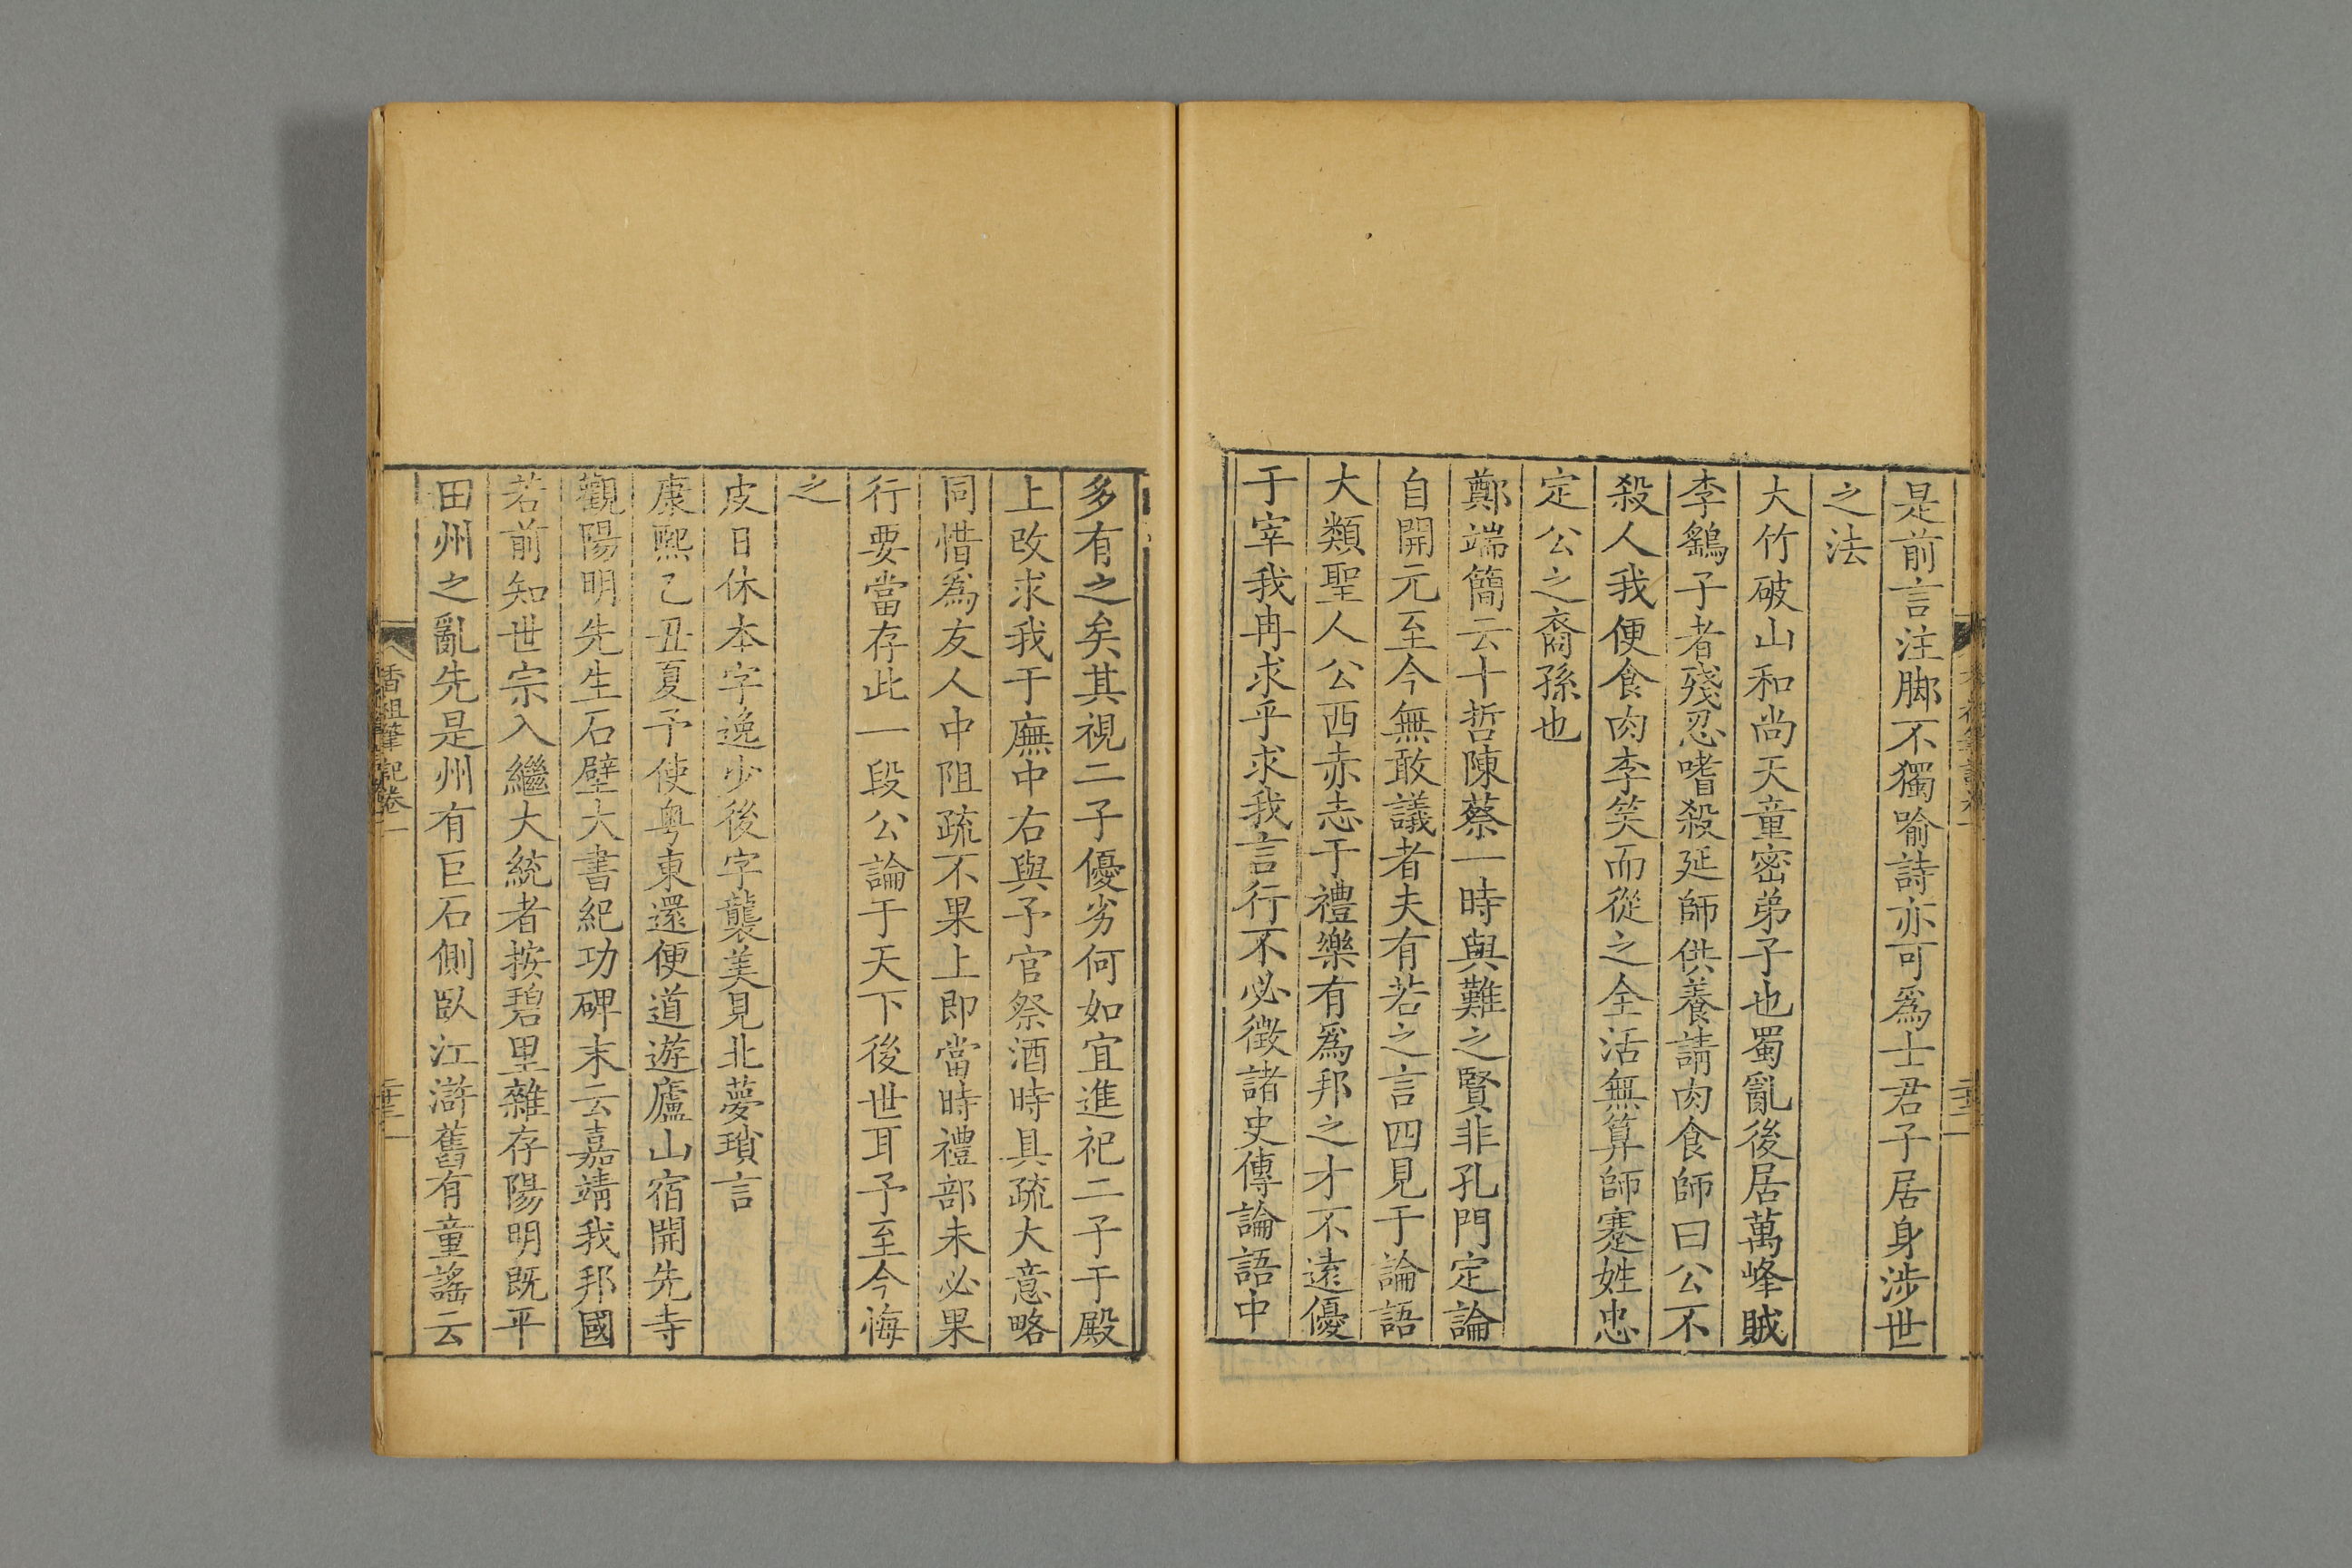 是前言注脚不獨喻詩亦可爲士君子居身涉世
之法
大竹破山和尚天童密弟子也蜀亂後居萬峰賊
李鷂子者殘忍嗜殺延師供養請肉食師曰公不
殺人我便食肉李笑而從之全活無算師蹇姓忠
定公之裔孫也
鄭端簡云十哲陳蔡一時與難之賢非孔門定論
自開元至今無敢議者夫有若之言四見于論語
大類聖人公西赤志于禮樂有爲邦之才不遠優
于宰我冉求乎求我言行不必徵諸史傳論語中
多有之矣其視二子優劣何如宜進祀二子于殿
上改求我于廡中右與予官祭酒時具疏大意略
同惜爲友人中阻疏不果上即當時禮部未必果
行要當存此一段公論于天下後世耳予至今悔
之
皮日休本字逸少後字襲美見北夢瑣言
康熙乙丑夏予使粤東還便道遊廬山宿開先寺
觀陽明先生石壁大書紀功碑末云嘉靖我邦國
若前知世宗入繼大統者按碧里雜存陽明既平
田州之亂先是州有巨石側臥江滸舊有童謠云
香祖筆記卷一